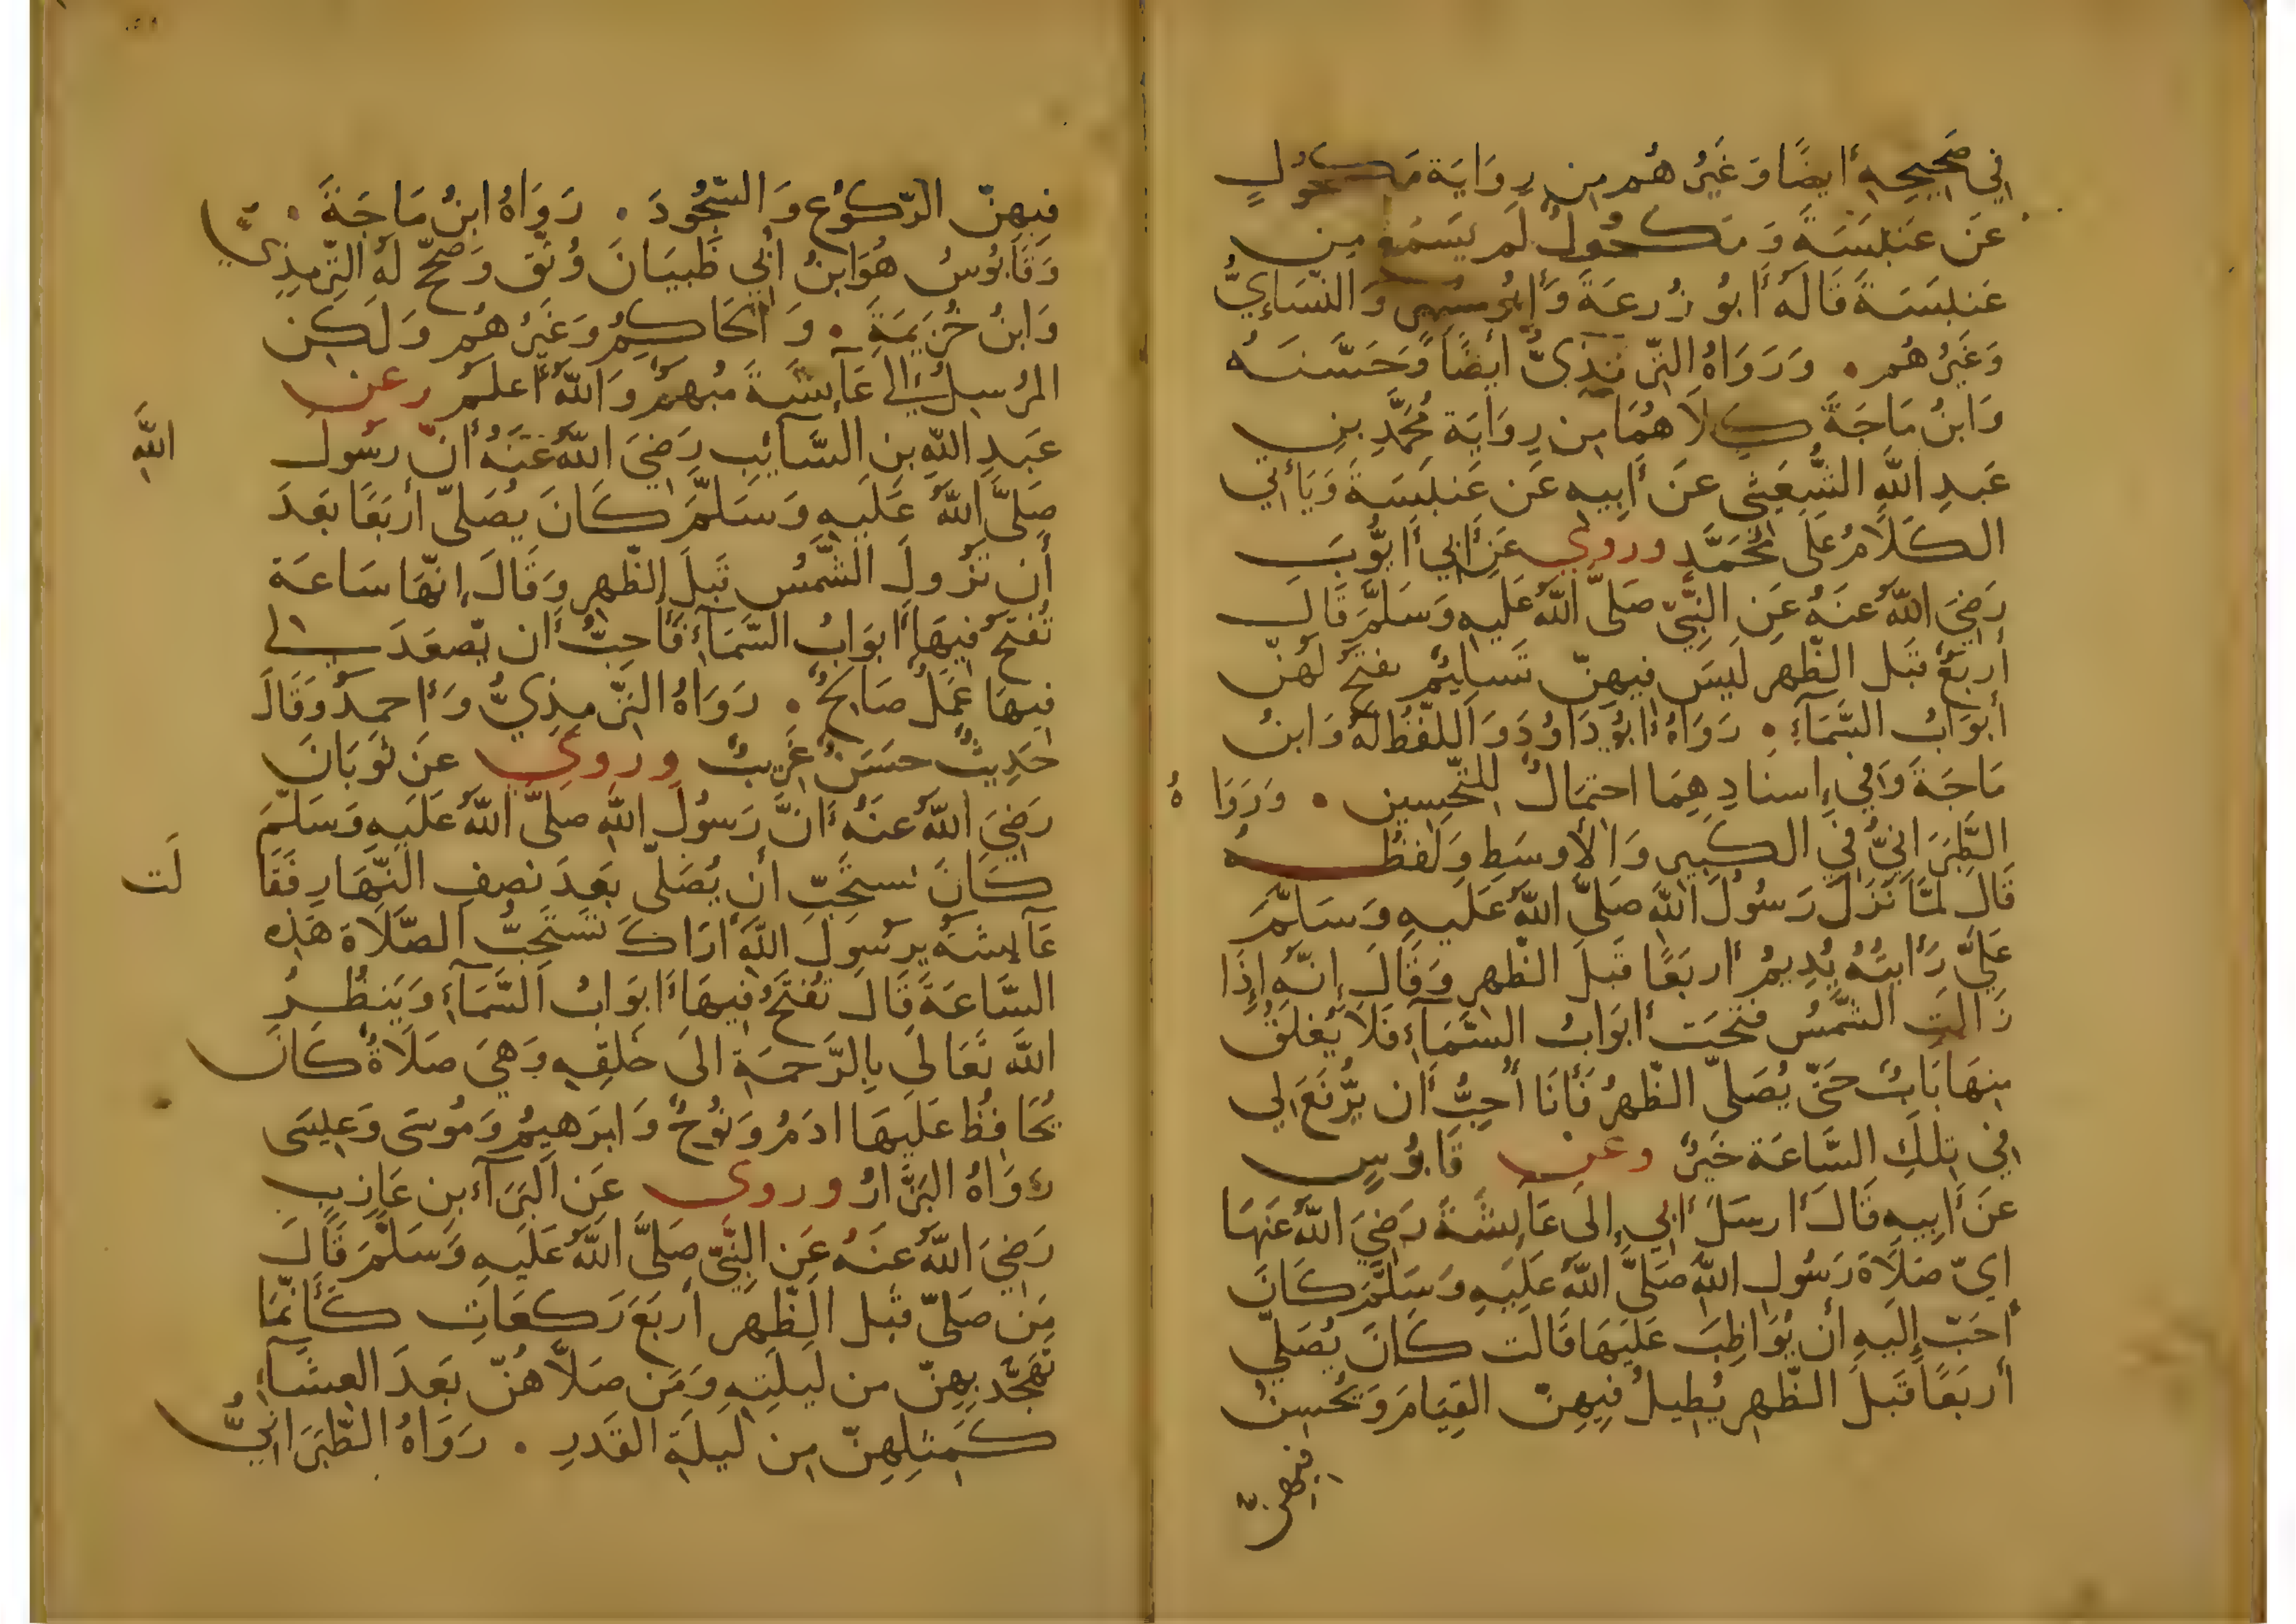 في صَحِيحِهِ أيضًا وَغَيرُهُم مِن رِوَايَة مَكحُولٍ
عَن عَنبَسَةَ وَمَكحُولٌ لَم يَسمَع مِن
عَنبَسَةَ قَالَهُ أبُو زُرعَةَ وَأبُو مسهِر وَالنَّسَاءِيُّ
وَغَيرُهُم . وَرَوَاهُ التِّرمذِيُّ أيضًا وَحَسَّنَهُ
وَابنُ مَاجَةَ كِلَاهُمَا مِن رِوَايَة مُحَمَّدِ بنِ
عَبدِ اللهِ الشُّعَيثي عَن أبِيهِ عَن عَنبَسَةَ وَيَأتي
الكَلَامُ عَلى مُحَمَّدٍ وروي عَن أبي أيُّوبَ
رَضِيَ اللهُ عَنهُ عَنِ النَّبِيّ صَلَّى اللهُ عَلَيهِ وَسَلَّمَ قَالَ
أربَعٌ قَبلَ الظّهرِ لَيسَ فِيهِنّ تَسلِيمٌ تفتَحُ لَهُنّ
أبوَابُ السَّمَآءِ . رَوَاهُ أبُو دَاوُدَ وَاللّفظُ لَهُ وَابنُ
مَاجَةَ وَفي إسنَادِهِمَا احتِمَالٌ لِلتّحسِين . وَرَوَاهُ
الطَّبَرَانيُّ في الكَبِيرِ وَالأوسَطِ وَلَفظُهُ
قَالَ لمَّا نَزَلَ رَسُولُ اللهِ صَلَّى اللهُ عَلَيهِ وَسَلَّمَ
عَلَيَّ رَأيتُهُ يُدِيمُ أربَعًا قَبلَ الظّهرِ وَقَالَ إنّهُ إذَا
زَالَتِ الشَّمسُ فتحَت أبوَابُ السَّمَآءِ فَلَا يُغلَقُ
مِنهَا بَابٌ حَتّى يُصَلّى الظّهرُ فَأنَا أُحِبُّ أن يُّرفَعَ لِي
فِي تِلكَ السَّاعَة خَيرٌ وعن قَابُوسٍ
عَن أبِيهِ قَالَ أرسَلَ أبي إلَى عَآئِشَةَ رَضِيَ اللهُ عَنهَا
ايّ صَلَاة رَسُولِ اللهِ صَلَّى اللهُ عَلَيهِ وَسَلَّمَ كَانَ
أحَبّ إلَيهِ أن يُوَاظِبَ عَلَيهَا قَالَت كَانَ يُصَلِّي
أربَعًا قَبلَ الظّهرِ يُطِيلُ فِيهِنّ القِيَامَ وَيُحسِنُ
فِيهِنّ
فِيهِنّ الرّكُوعَ وَالسّجُودَ . رَوَاهُ ابنُ مَاجَةَ .
وَقَابُوسُ هُوَ ابنُ أبي ظَبيَانَ وُثّق وَصَحّحَ لَهُ التّرمِذِيُّ
وَابنُ خُزَيمَةَ . وَالحَاكِمُ وَغَيرُهُم وَلَكِن
المُرسِلُ إلى عَآئِشَةَ مُبهَمٌ وَاللهُ أعلَمُ وعن
عَبدِ اللهِ بنِ السَّآئِبِ رَضِيَ اللهُ عَنهُ أنّ رَسُولَ اللهِ
صَلَّى اللهُ عَلَيهِ وَسَلَّمَ كَانَ يُصَلّي أربَعًا بَعدَ
أن تَزُولَ الشَّمسُ قَبلَ الظّهرِ وَقَالَ إنّهَا سَاعَة
تُفتَحُ فِيهَا أبوَابُ السَّمَآءِ فَأُحِبُّ أن يّصعَدَ لي
فِيهَا عَمَلٌ صَالِحٌ . رَوَاهُ التِّرمِذِيُّ وَأحمدُ وَقَالَ
حَدِيثٌ حَسَنٌ غَرِيبٌ وروي عَن ثَوبَانَ
رَضِيَ اللهُ عَنهُ أنَّ رَسُولَ اللهِ صَلَّى اللهُ عَلَيهِ وَسَلَّمَ
كَانَ يستَحِبّ أن يُصَلّى بَعدَ نِصفِ النّهَارِ فَقَالَت
عَآئِشَةُ يرسُولَ اللهِ أرَاكَ تَستَحِبُّ الصَّلَاة هَذِهِ
السَّاعَةَ قَالَ تُفتَحُ فِيهَا أبوَابُ السَّمَآءِ وَيَنظُرُ
اللهُ تَعَالَى بِالرَّحمَةِ الَى خَلقِهِ وَهيَ صَلَاةٌ كَانَ
يُحَافِظُ عَلَيهَا ادَمُ وَنُوحٌ وَابرَهِيمُ وَمُوسَى وَعِيسَى
رَوَاهُ البَزَّارُ وروي عَنِ البَرَآءِ بنِ عَازِبٍ
رَضِيَ اللهُ عَنهُ عَنِ النَّبِيّ صَلَّى اللهُ عَلَيهِ وَسَلَّمَ قَالَ
مَن صَلّى قَبلَ الظّهرِ أربَعَ رَكَعَاتٍ كَأنّمَا
تهَجّد بِهِنّ من لَيلَتِهِ وَمَن صَلَّاهُنّ بَعدَ العِشَآءِ
كَمِثلِهِنّ مِن لَيلَةِ القَدرِ . رَوَاهُ الطَّبَرَانيُّ